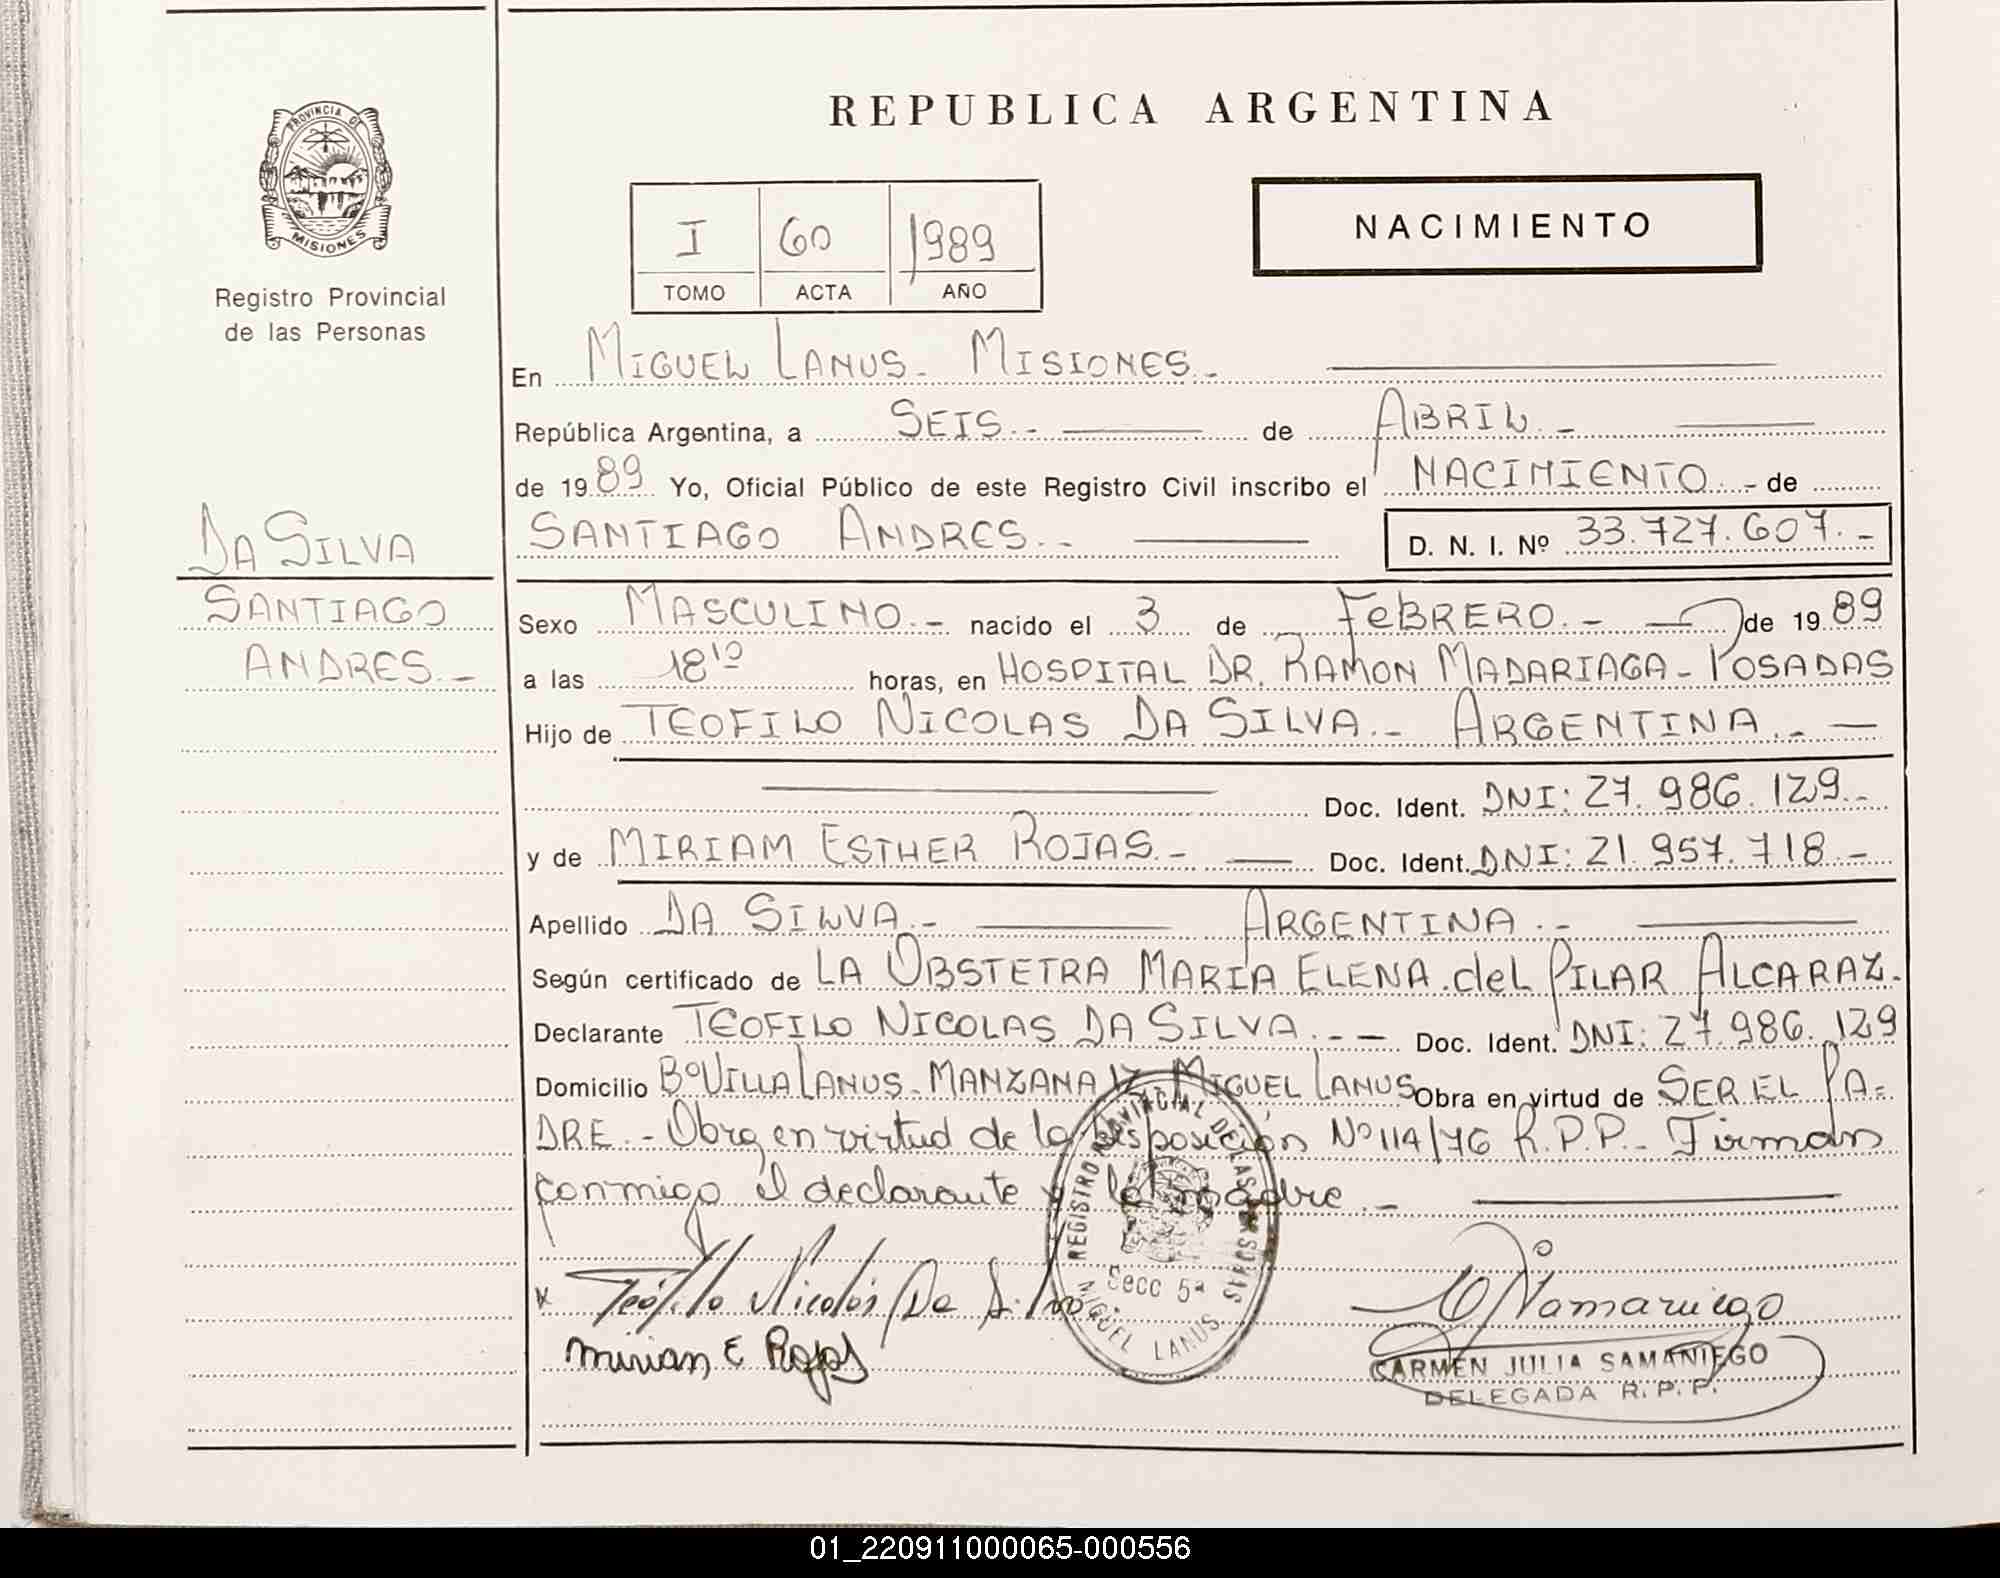 REPUBLICA ARGENTINA
PROVINCIA DE
MISIONES
Registro Provincial
de las Personas
I 60 1989
TOMO ACTA AÑO
NACIMIENTO
En MIGUEL LANUS - MISIONES.-
República Argentina, a SEIS.- de ABRIL.-
de 1989 Yo, Oficial Público de este Registro Civil inscribo el NACIMIENTO.- de
SANTIAGO ANDRES.- D. N. I. Nº 33.727.607.-
DA SILVA
SANTIAGO
ANDRES.-
Sexo MASCULINO.- nacido el 3 de FEBRERO.- de 1989
a las 18¹⁰ horas, en HOSPITAL DR. RAMON MADARIAGA - POSADAS
Hijo de TEOFILO NICOLAS DA SILVA.- ARGENTINA.-
Doc. Ident. DNI: 27.986.129.-
y de MIRIAM ESTHER ROJAS.- Doc. Ident. DNI: 21.957.718.-
Apellido DA SILVA.- ARGENTINA.-
Según certificado de LA OBSTETRA MARIA ELENA del PILAR ALCARAZ.
Declarante TEOFILO NICOLAS DA SILVA.- Doc. Ident. DNI: 27.986.129
Domicilio Bº VILLA LANUS - MANZANA MIGUEL LANUS Obra en virtud de SER EL PA=
DRE.- Obra en virtud de la Disposición Nº 114/76 R.P.P.- Firman
conmigo el declarante y la madre.-
x Teófilo Nicolás Da Silva
Mirian E Rojas
REGISTRO PROVINCIAL DE LAS PERSONAS
Secc 5ª
MIGUEL LANUS
C J Samaniego
CARMEN JULIA SAMANIEGO
DELEGADA R.P.P.
01_220911000065-000556